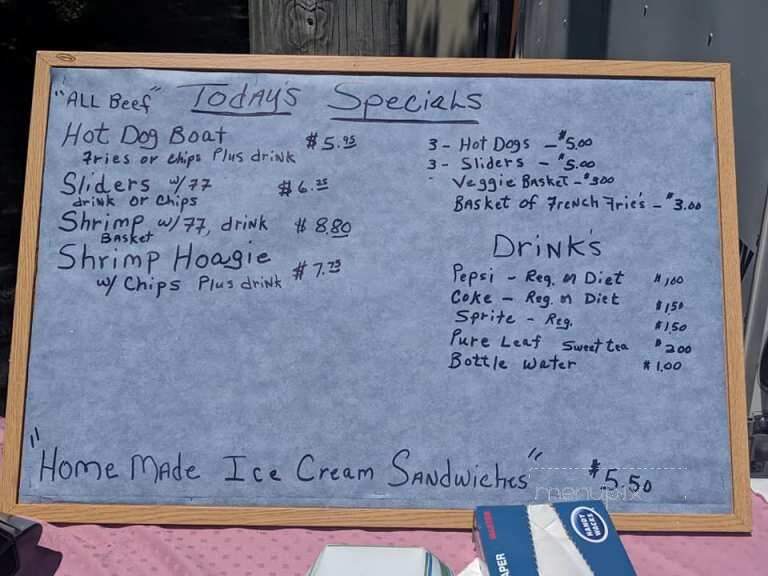 "ALL Beef" Today's Specials
Hot Dog Boat $5.95
Fries or chips Plus drink
Sliders w/FF $6.25
drink or chips
Shrimp w/FF, drink $8.80
Basket
Shrimp Hoagie $7.75
w/ Chips Plus drink
3 - Hot Dogs - $5.00
3 - Sliders - $5.00
Veggie Basket - $3.00
Basket of French Frie's - $3.00
Drink's
Pepsi - Reg. or Diet $1.00
Coke - Reg. or Diet $1.50
Sprite - Reg. $1.50
Pure Leaf Sweet tea $2.00
Bottle Water $1.00
"Home Made Ice Cream Sandwiches" $5.50
menupix
HANDY WACKS
APER